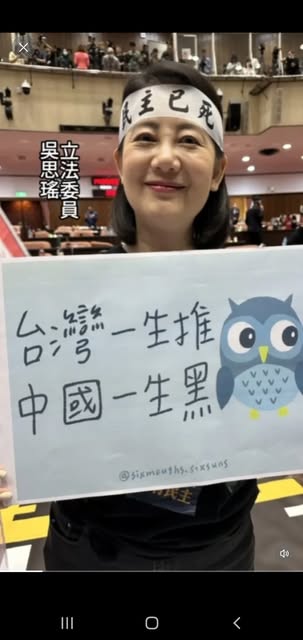 民主已死
立法委員
吳思瑤
台灣一生推
中國一生黑
@sixmouths.sixsuns
民主